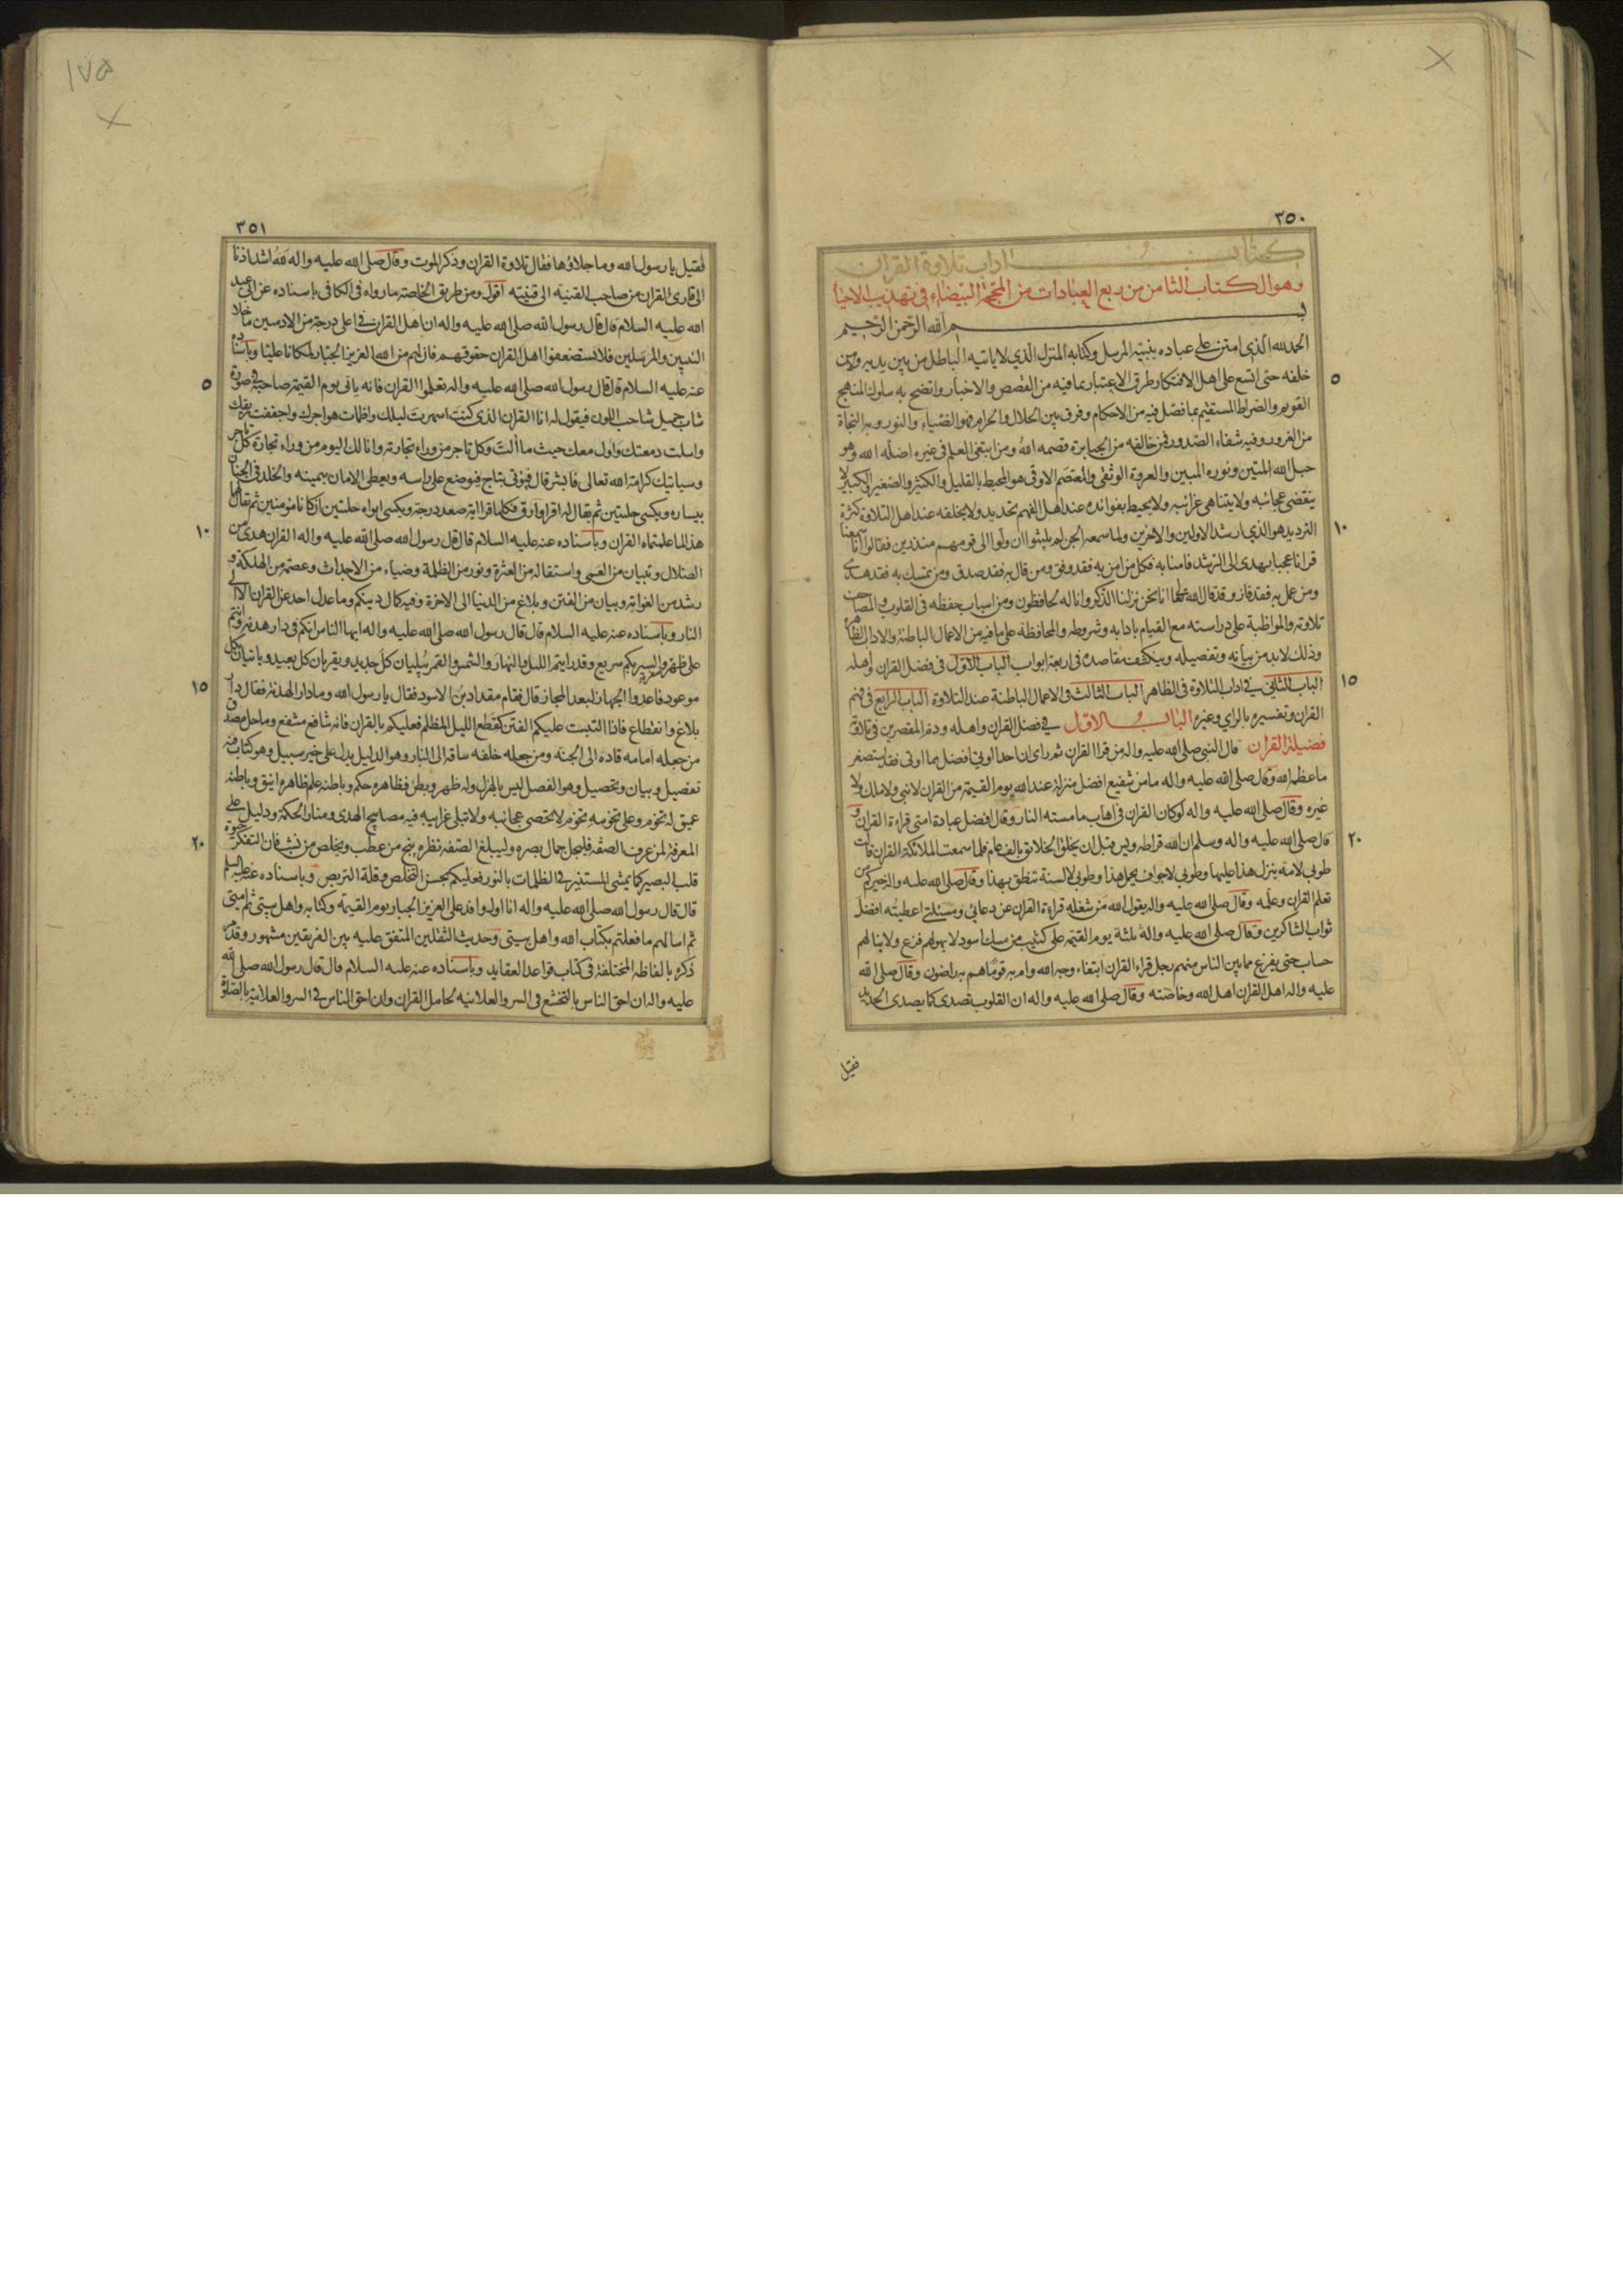 ٣٥٠
كتاب اداب تلاوة القران
وهو الكتاب الثامن من ربع العبادات من المحجة البيضاء في تهذيب الاحياء
بسم الله الرحمن الرحيم
الحمد لله الذي امتن على عباده بنبيه المرسل وكتابه المنزل الذي لا ياتيه الباطل من بين يديه ومن
خلفه حتى اتسع على اهل الافتكار طرق الاعتبار بما فيه من القصص والاخبار واتضح به سلوك المنهج
القويم والصراط المستقيم بما فصّل فيه من الاحكام وفرق بين الحلال والحرام فهو الضياء والنور وبه النجاة
من الغرور وفيه شفاء الصدور فمن خالفه من الجبابرة قصمه الله ومن ابتغى العلم في غيره اضله الله وهو
حبل الله المتين ونوره المبين والعروة الوثقى والمعتصم الاوقى هو المحيط بالقليل والكثير والصغير والكبير لا
ينقضي عجائبه ولا يتناهى غرائبه ولا يحيط بفوائده عند اهل الفهم تحديد ولا يخلقه عند اهل التلاوة كثرة
الترديد هو الذي ارشد الاولين والاخرين ولما سمعه الجن لم يلبثوا ان ولوا الى قومهم منذرين فقالوا انا سمعنا
قرانا عجبا يهدى الى الرشد فامنا به فكل من امن به فقد وفق ومن قال به فقد صدق ومن تمسك به فقد هدى
ومن عمل به فقد فاز وقد قال الله تعالى انا نحن نزلنا الذكر وانا له لحافظون ومن اسباب حفظه في القلوب والمصاحف
تلاوته والمواظبة على دراسته مع القيام بادابه وشروطه والمحافظة على ما فيه من الاعمال الباطنة والاداب الظاهرة
وذلك لابد من بيانه وتفصيله وينكشف مقاصده في اربعة ابواب الباب الاول في فضل القران واهله
الباب الثاني في اداب التلاوة في الظاهر الباب الثالث في الاعمال الباطنة عند التلاوة الباب الرابع في فهم
القران وتفسيره بالراي وغيره الباب الاول في فضل القران واهله وذم المقصرين في تلاوته
فضيلة القران قال النبي صلى الله عليه واله من قرا القران ثم راى ان احدا اوتي افضل مما اوتي فقد استصغر
ما عظمه الله وقال صلى الله عليه واله ما من شفيع افضل منزلة عند الله يوم القيمة من القران لا نبي ولا ملك ولا
غيره وقال صلى الله عليه واله لو كان القران في اهاب ما مسته النار وقال افضل عبادة امتي قراءة القران و
قال صلى الله عليه واله وسلم ان الله قرا طه ويس قبل ان يخلق الخلائق بالف عام فلما سمعت الملائكة القران قالت
طوبى لامة ينزل هذا عليها وطوبى لاجواف يحمل هذا وطوبى لالسنة تنطق بهذا وقال صلى الله عليه واله خيركم من
تعلم القران وعلمه وقال صلى الله عليه واله يقول الله من شغله قراءة القران عن دعائي ومسئلتي اعطيته افضل
ثواب الشاكرين وقال صلى الله عليه واله ثلثة يوم القيمة على كثيب من مسك اسود لا يهولهم فزع ولا ينالهم
حساب حتى يفرغ مما بين الناس منهم رجل قراء القران ابتغاء وجه الله وام به قوما هم به راضون وقال صلى الله
عليه واله اهل القران اهل الله وخاصته وقال صلى الله عليه واله ان القلوب تصدى كما يصدى الحديد
فقيل
٣٥١
فقيل يا رسول الله وما جلاؤها فقال تلاوة القران وذكر الموت وقال صلى الله عليه واله لله اشد اذنا
الى قارى القران من صاحب القينة الى قينته اقول ومن طريق الخاصة ما رواه في الكافي باسناده عن ابي عبد
الله عليه السلام قال قال رسول الله صلى الله عليه واله ان اهل القران في اعلى درجة من الادميين ما خلا
النبيين والمرسلين فلا تستضعفوا اهل القران حقوقهم فان لهم من الله العزيز الجبار لمكانا عليا وباسناده
عنه عليه السلام قال قال رسول الله صلى الله عليه واله تعلموا القران فانه ياتى يوم القيمة صاحبه في صورة
شاب جميل شاحب اللون فيقول له انا القران الذي كنت اسهرت ليلك واظمات هواجرك واجففت ريقك
واسلت دمعتك واول معك حيث ما الت وكل تاجر من وراء تجارته وانا لك اليوم من وراء تجارة كل تاجر
وسياتيك كرامة الله تعالى فابشر قال فيؤتى بتاج فيوضع على راسه ويعطى الامان بيمينه والخلد في الجنان
بيساره ويكسى حلتين ثم يقال له اقرا وارق فكلما قرا اية صعد درجة ويكسى ابواه حلتين ان كانا مؤمنين ثم يقال لهما
هذا لما علمتماه القران وباسناده عنه عليه السلام قال قال رسول الله صلى الله عليه واله القران هدى من
الضلال وتبيان من العمى واستقالة من العثرة ونور من الظلمة وضياء من الاحداث وعصمة من الهلكة و
رشد من الغواية وبيان من الفتن وبلاغ من الدنيا الى الاخرة وفيه كمال دينكم وما عدل احد عن القران الا الى
النار وباسناده عنه عليه السلام قال قال رسول الله صلى الله عليه واله ايها الناس انكم في دار هدنة وانتم
على ظهر سفر والسير بكم سريع وقد رايتم الليل والنهار والشمس والقمر يبليان كل جديد ويقربان كل بعيد وياتيان بكل
موعود فاعدوا الجهاز لبعد المجاز قال فقام مقداد بن الاسود فقال يا رسول الله وما دار الهدنة فقال دار
بلاغ وانقطاع فاذا التبست عليكم الفتن كقطع الليل المظلم فعليكم بالقران فانه شافع مشفع وماحل مصدق
من جعله امامه قاده الى الجنة ومن جعله خلفه ساقه الى النار وهو الدليل يدل على خير سبيل وهو كتاب فيه
تفصيل وبيان وتحصيل وهو الفصل ليس بالهزل وله ظهر وبطن فظاهره حكم وباطنه علم ظاهره انيق وباطنه
عميق له تخوم وعلى تخومه تخوم لا تحصى عجائبه ولا تبلى غرايبه فيه مصابيح الهدى ومنار الحكمة ودليل على
المعرفة لمن عرف الصفة فليجل جال بصره وليبلغ الصفة نظره ينج من عطب ويخلص من نشب فان التفكر حيوة
قلب البصير كما يمشي المستنير في الظلمات بالنور فعليكم بحسن التخلص وقلة التربص وباسناده عنه عليه السلم
قال قال رسول الله صلى الله عليه واله انا اول وافد على العزيز الجبار يوم القيمة وكتابه واهل بيتى ثم امتى
ثم اسالهم ما فعلتم بكتاب الله واهل بيتى وحديث الثقلين المتفق عليه بين الفريقين مشهور وقد مر
ذكره بالفاظه المختلفة في كتاب قواعد العقايد وباسناده عنه عليه السلام قال قال رسول الله صلى الله
عليه واله ان احق الناس بالتخشع في السر والعلانية لحامل القران وان احق الناس في السر والعلانية بالصلوة